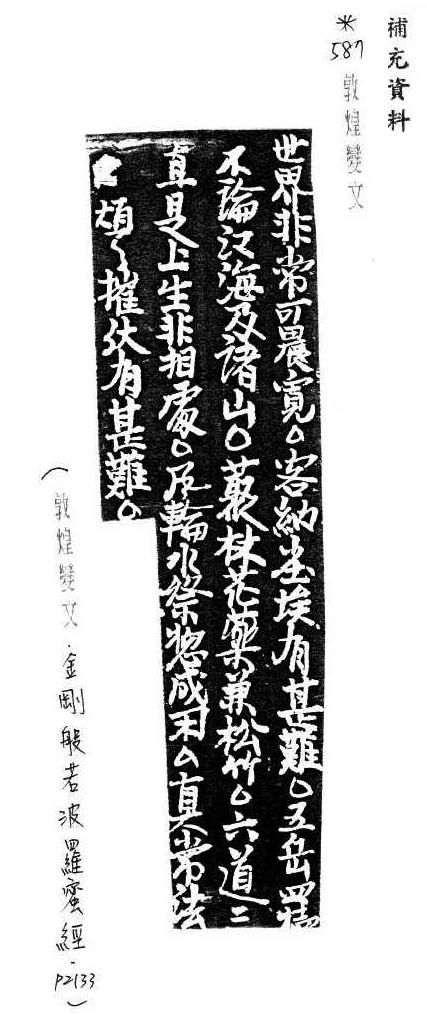 補充資料
※587 敦煌變文
世界非常可寬。容納尘埃有甚難。五岳
不論江海及諸山。藂林花藥兼松竹。六道二
直是上生非相處。輪水際惣成。真常法
煩〻摧伏有甚難。
(敦煌變文.金剛般若波羅蜜經.P2133)